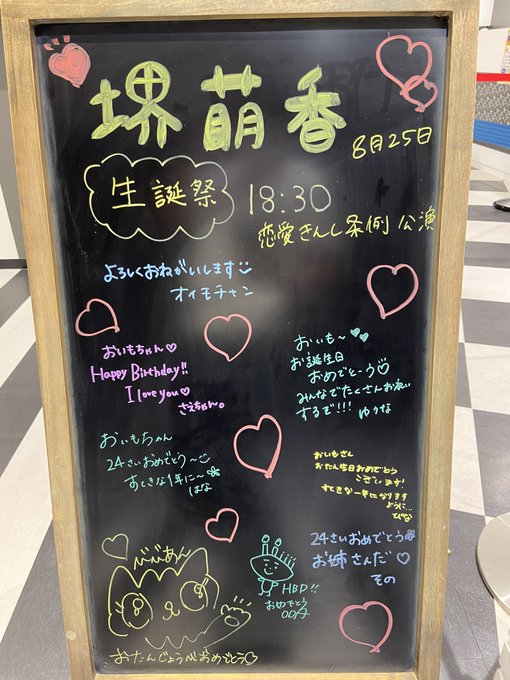 堺 萌 香
8月25日
生誕祭
18:30
恋愛きんし条例 公演
よろしくおねがいします
オイモチャン
おいもちゃん♡
Happy Birthday!!
I love you♡
さえちゃん。
おいも〜♥♥
お誕生日
おめでとーう♡
みんなでたくさんお祝い
するで!!! ゆりな
おいもちゃん
24さいおめでとう〜
すてきな1年に〜
はな
おいもさん
おたん生日おめでとう
ございます!
すてきな一年になります
ように...
24さいおめでとう
お姉さんだ♡
その
HBD!!
おめでとう
おたんじょうびおめでとう♡